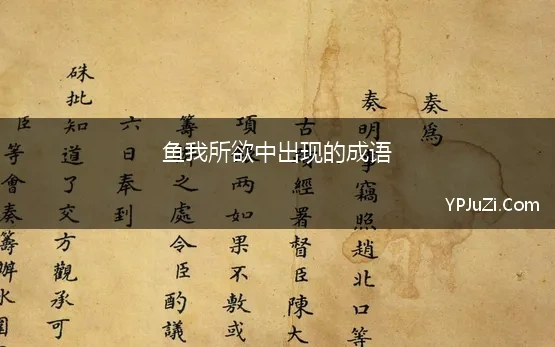 鱼我所欲中出现的成语
YPJuZi.Com
奏為
奏明事竊照趙北口等
古 經署督臣陳大
項 兩如果不敷或
籌 之處令臣酌議
六日奉到
硃批知道了交方觀承可
臣等會奏籌辦水圍